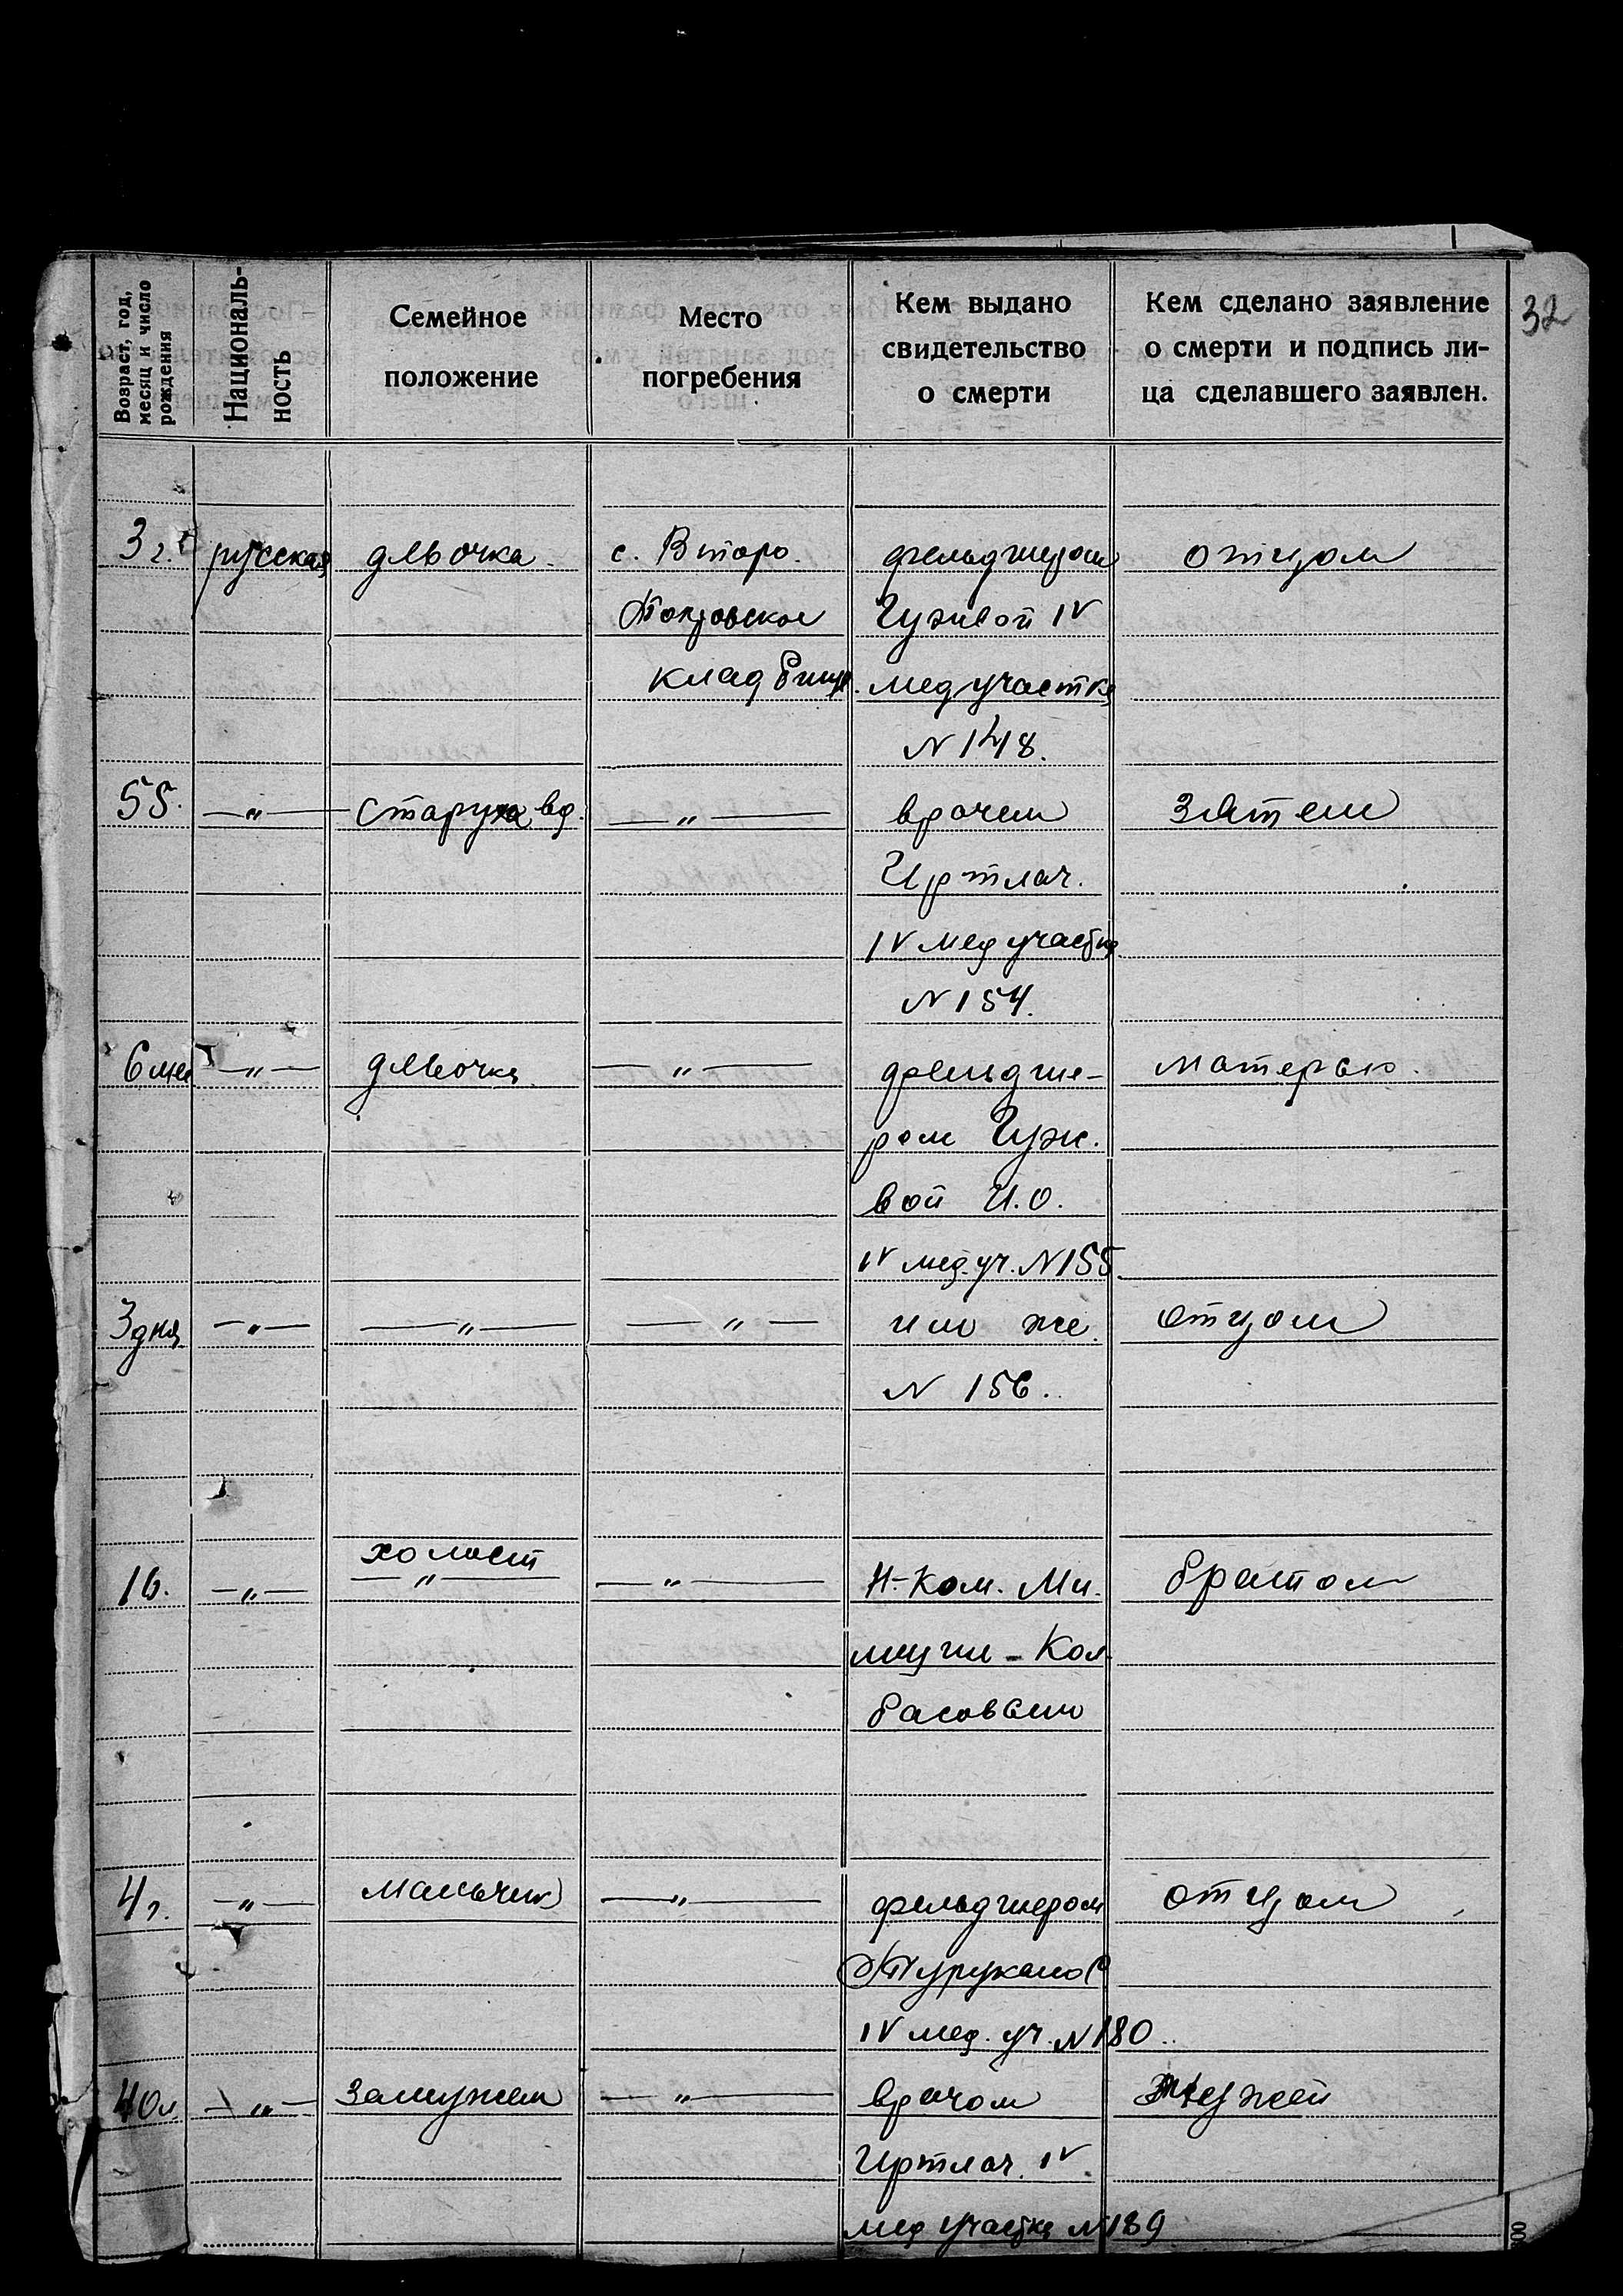 32
Возраст, год, месяц и число рождения
Националь-ность
Семейное положение
Место погребения
Кем выдано свидетельство о смерти
Кем сделано заявление о смерти и подпись ли-ца сделавшего заявлен.
3 г. русская девочка. с. Второ. фельдшером отцом
Покровское Гужвой IV
кладбище. медучастка
N 148.
55. —„— старуха вд. —„— врачем зятем
Иртлач.
IV мед участка
N 154.
6 мес —„— девочка —„— фельдше- матерью.
ром Гуж.
вой И.О.
IV мед. уч. N 155
3 дня —„— —„— —„— им же. отцом
N 156.
холост
16. —„— —„— —„— Н-ком. Ми. братом
лиции - Кол-
басовым
4 г. —„— мальчик —„— фельдшером отцом
IV мед. уч. N 180.
40 л. —„— замужем —„— врачом мужем
Иртлач. IV.
мед участка N 189